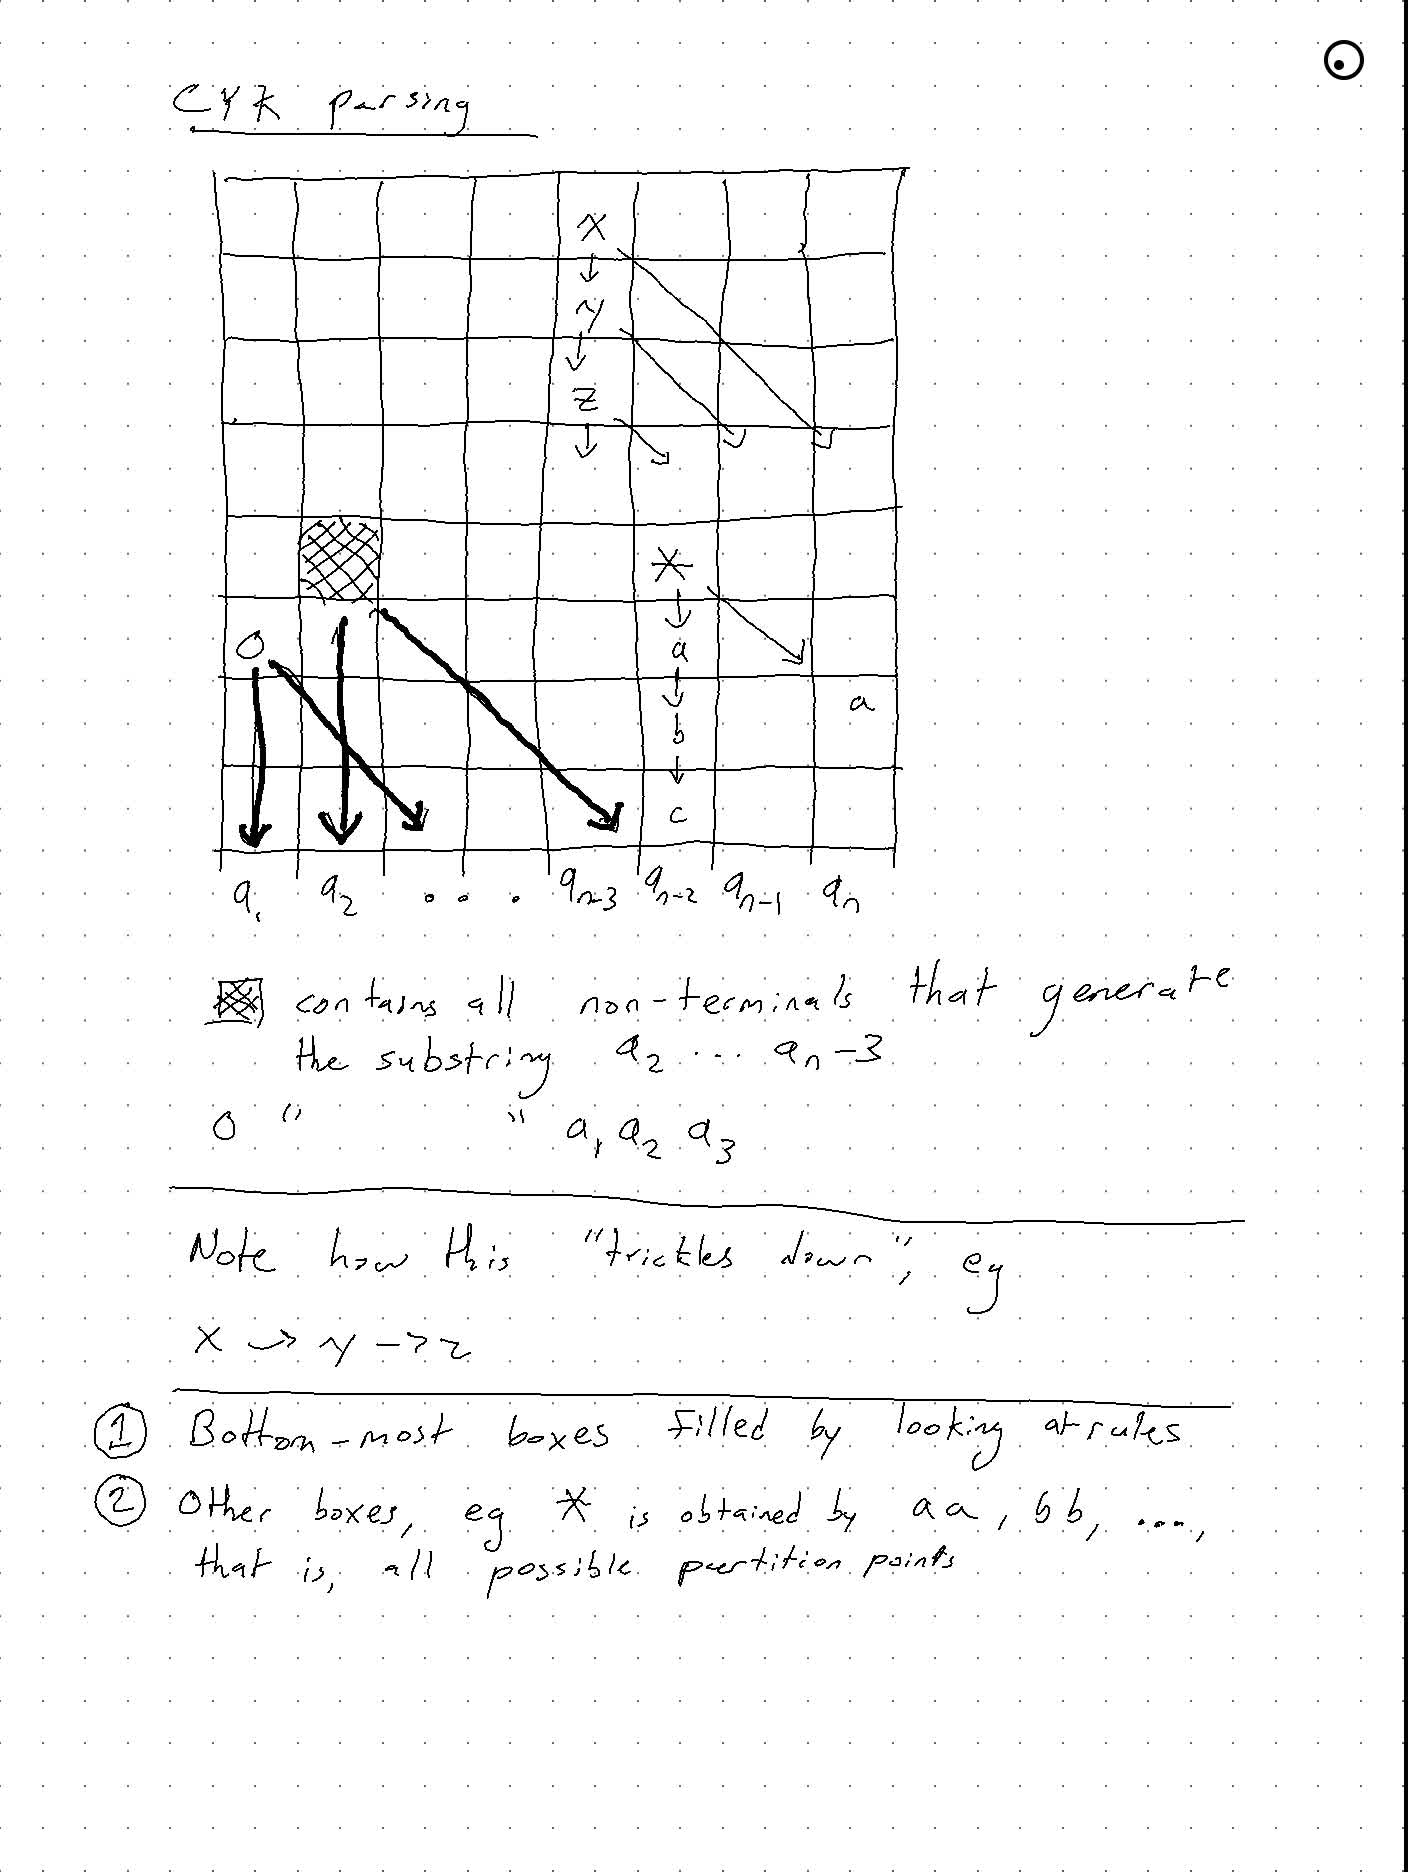 CYK parsing
X
Y
Z
*
O
a
a
b
c
a₁ a₂ . . . aₙ₋₃ aₙ₋₂ aₙ₋₁ aₙ
contains all non-terminals that generate
the substring a₂ ... aₙ-3
O " " a₁ a₂ a₃
Note how this "trickles down", eg
X → Y -> Z
① Bottom-most boxes filled by looking at rules
② Other boxes, eg * is obtained by aa, bb, ...,
that is, all possible partition points